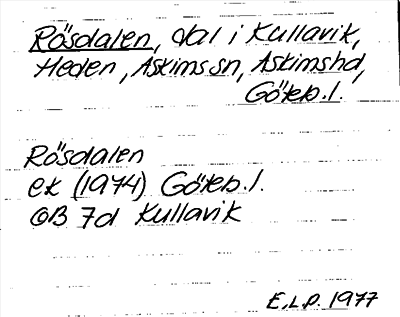 Rösdalen, dal i Kullavik,
Heden, Askims sn, Askims hd,
Göteb. l.
Rösdalen
ek (1974) Göteb. l.
GB 7d Kullavik
E.L.P. 1977